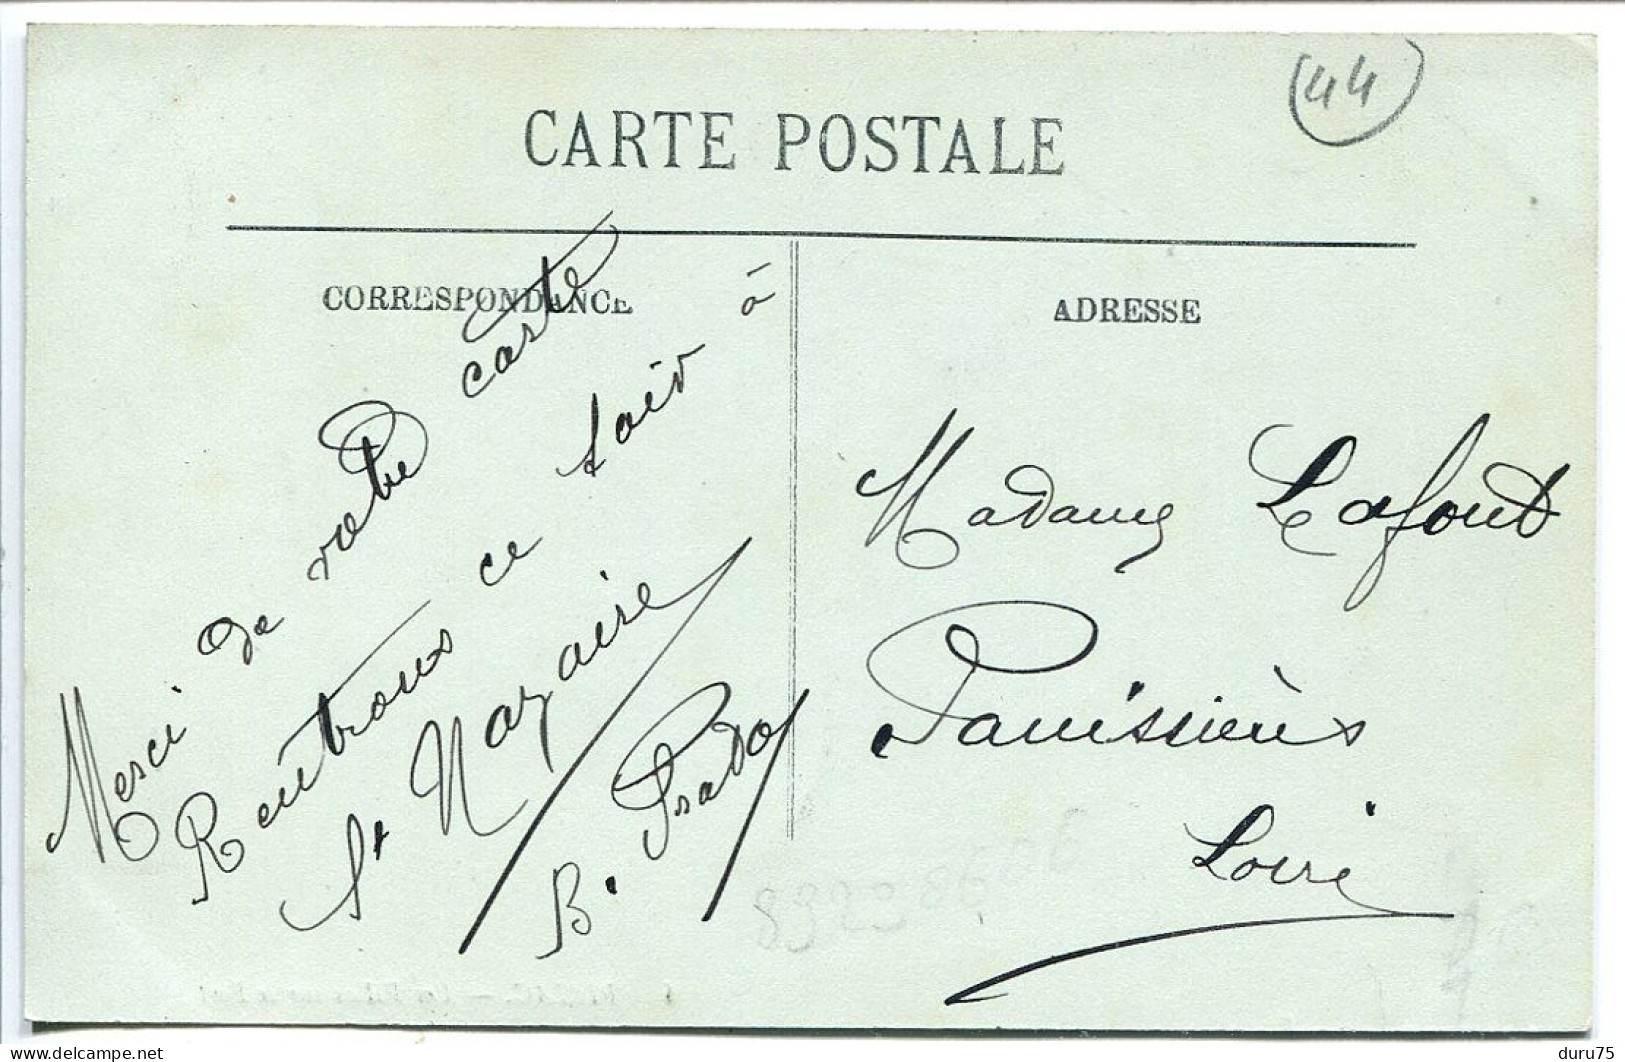 (44)
CARTE POSTALE
CORRESPONDANCE
Merci de votre carte
Rentrons ce soir à
St Nazaire
B. Prado
ADRESSE
Madame Lafont
Panissières
Loire
delcampe.net
duru75